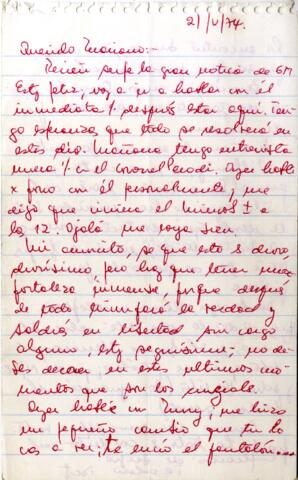 21/V/74.
Querido Mariano:-
Recién supe la gran noticia de GM
Estoy feliz, voy a ir a hablar con él
inmediata/. después estar aquí. Ten-
go esperanza que todo se resolverá en
estos días. Mañana tengo entrevista
nueva/. c/ el coronel. Ayer hablé
x fono con él personalmente, me
dijo que viniera el ± a
las 12. Ojalá me vaya bien.
Mi amorcito, se que esto es duro,
durísimo, pero hay que tener una
fortaleza inmensa, porque después
de todo triunfará la verdad y
saldrás en libertad sin cargo
alguno, estoy segurísima, no de-
bes decaer en estos últimos mo-
mentos que son los cruciales.
Ayer hablé con, me hizo
un pequeño cambio que tu lo
vas a ver; te envío el pantalón....